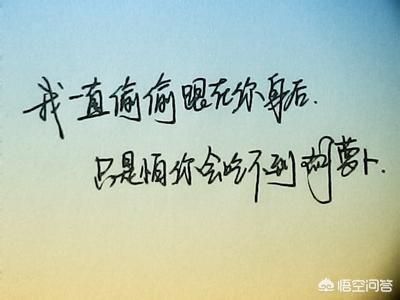 我一直偷偷跟在你身后.
只是怕你会吃不到胡萝卜.
悟空问答